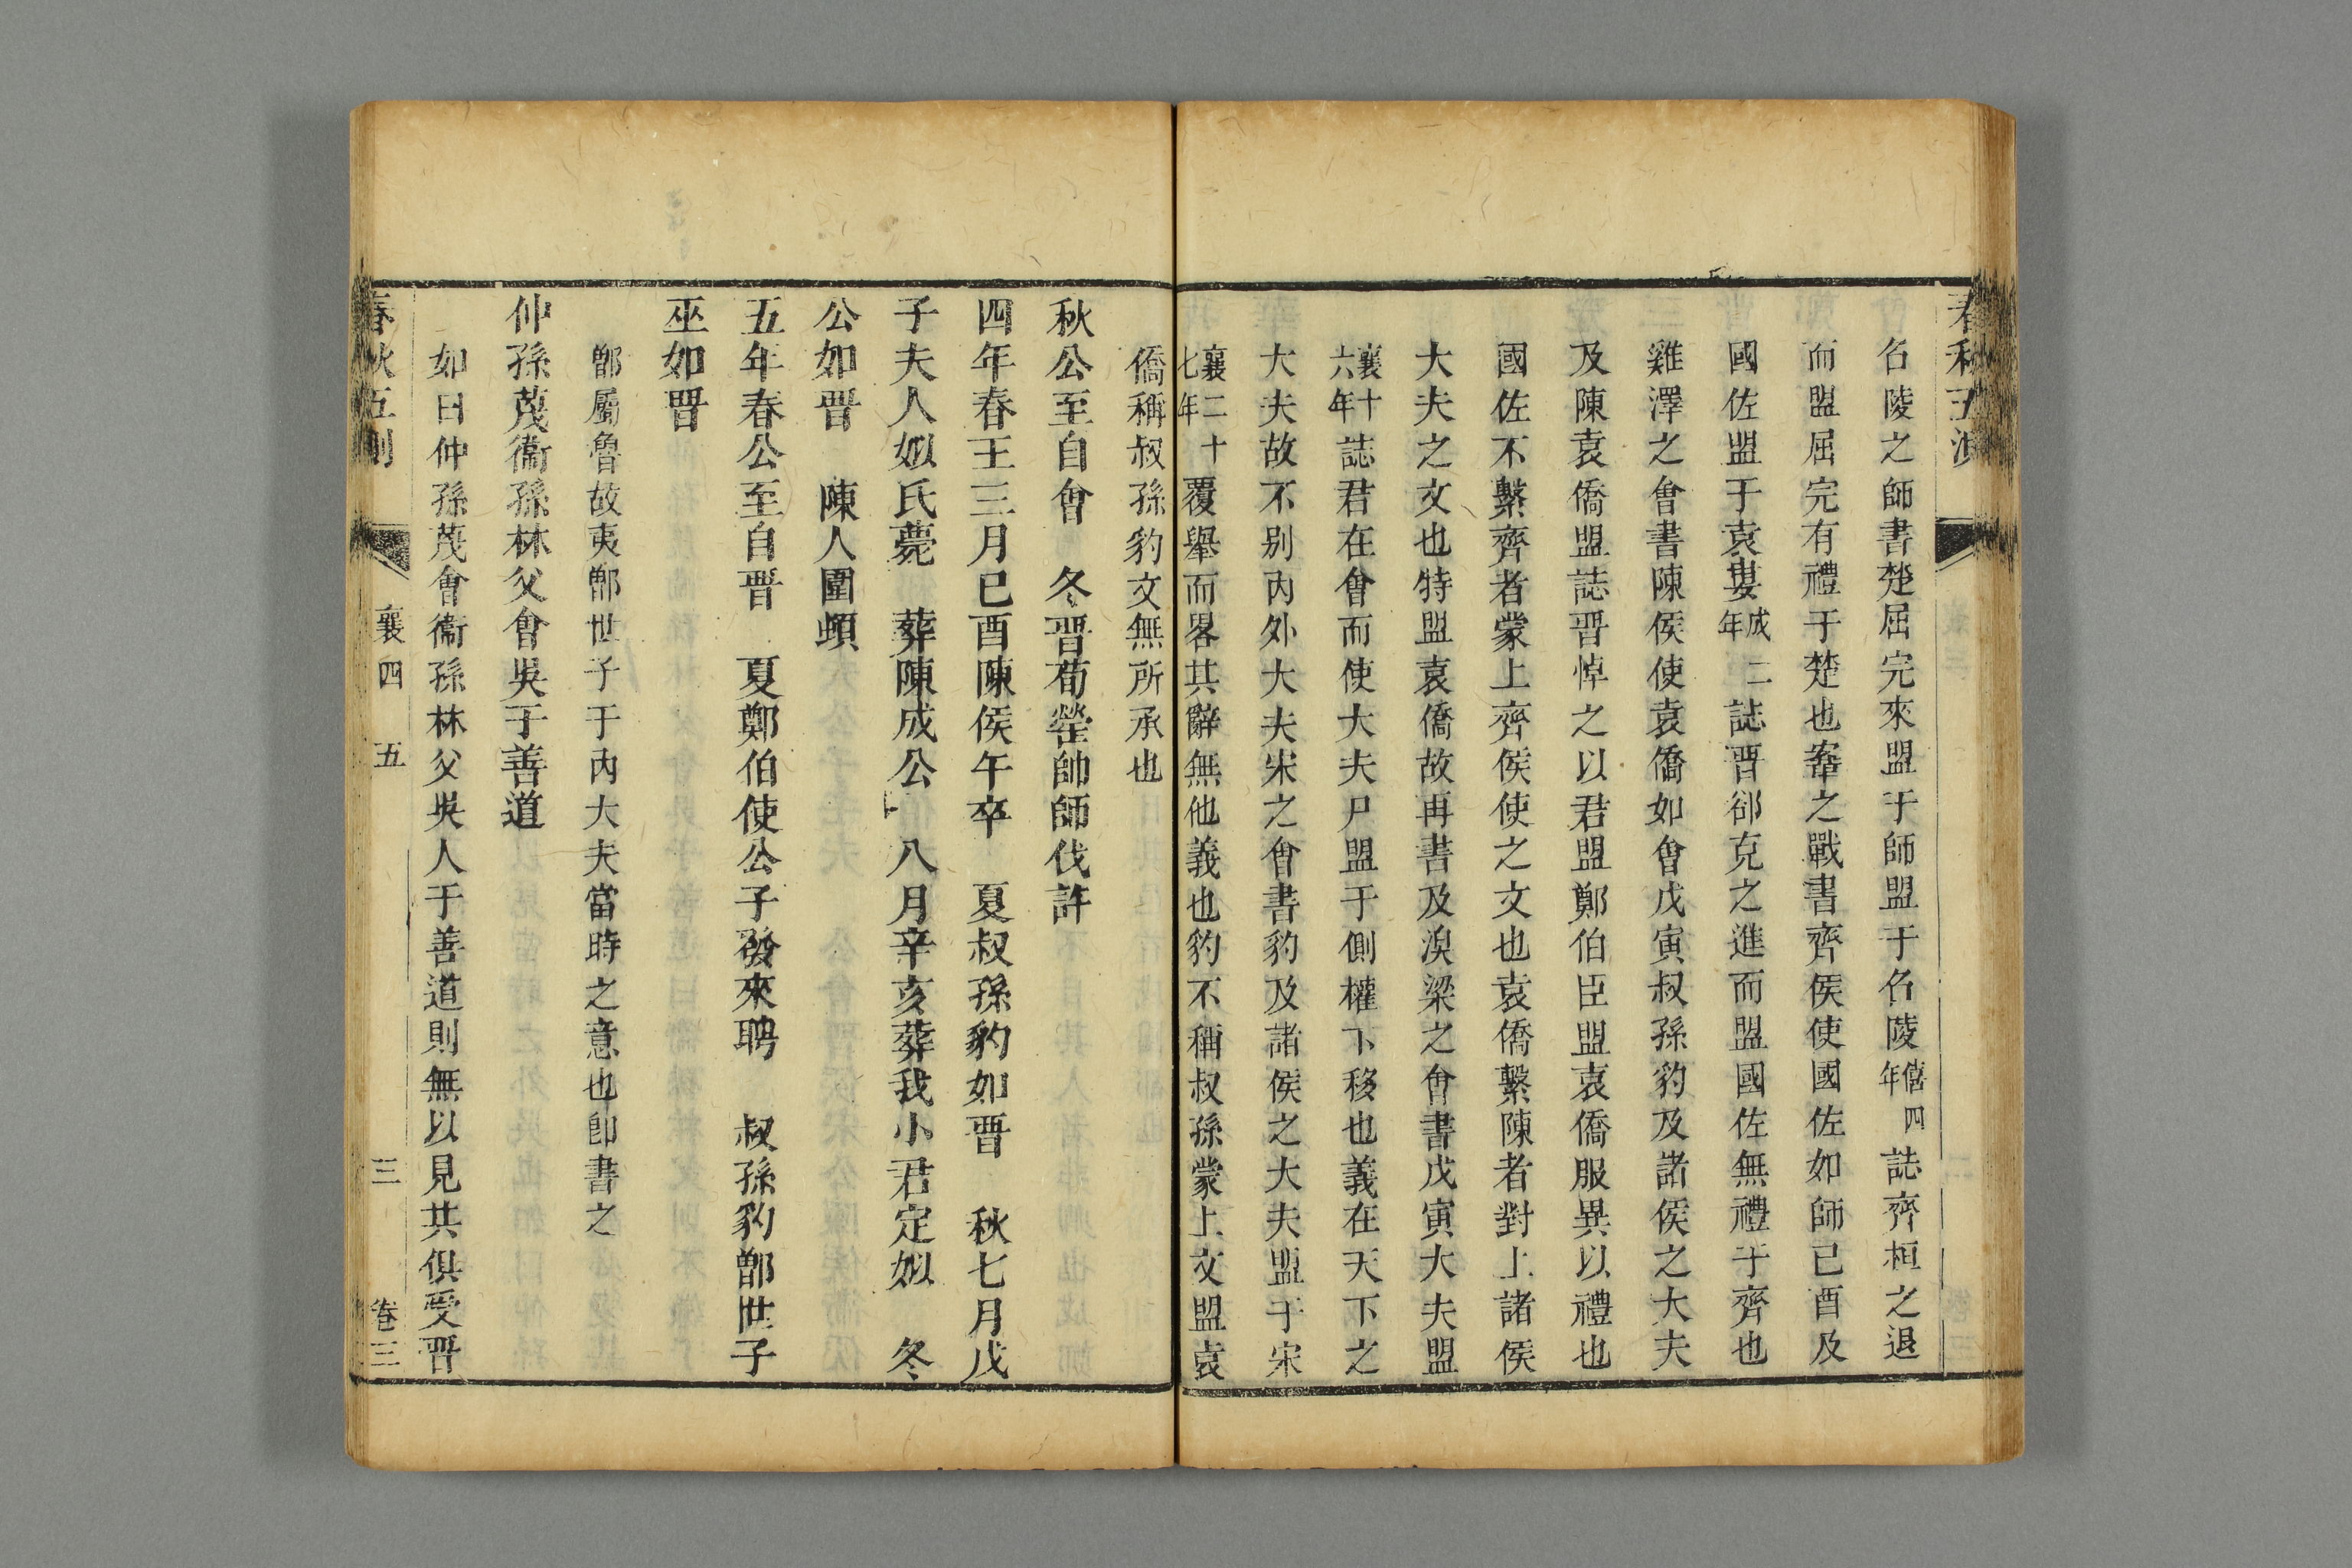 名陵之師書楚屈完來盟于師盟于名陵僖四年誌齊桓之退
而盟屈完有禮于楚也鞌之戰書齊侯使國佐如師已酉及
國佐盟于袁婁成二年誌晋郤克之進而盟國佐無禮于齊也
雞澤之會書陳侯使袁僑如會戊寅叔孫豹及諸侯之大夫
及陳袁僑盟誌晋悼之以君盟鄭伯臣盟袁僑服異以禮也
國佐不繫齊者蒙上齊侯使之文也袁僑繫陳者對上諸侯
大夫之文也特盟袁僑故再書及湨梁之會書戊寅大夫盟
襄十六年誌君在會而使大夫尸盟于側權下移也義在天下之
大夫故不别内外大夫宋之會書豹及諸侯之大夫盟于宋
襄二十七年覆舉而畧其辭無他義也豹不稱叔孫蒙上文盟袁
僑稱叔孫豹文無所承也
秋公至自會　冬晋荀罃帥師伐許
四年春王三月已酉陳侯午卒　夏叔孫豹如晋　秋七月戊
子夫人姒氏薨　葬陳成公　八月辛亥葬我小君定姒　冬
公如晋　陳人圍頓
五年春公至自晋　夏鄭伯使公子發來聘　叔孫豹鄫世子
巫如晋
鄫屬魯故夷鄫世子于内大夫當時之意也卽書之
仲孫蔑衞孫林父會吳于善道
如曰仲孫蔑會衞孫林父吳人于善道則無以見共俱受晋
春秋五測　襄四　五　三　卷三